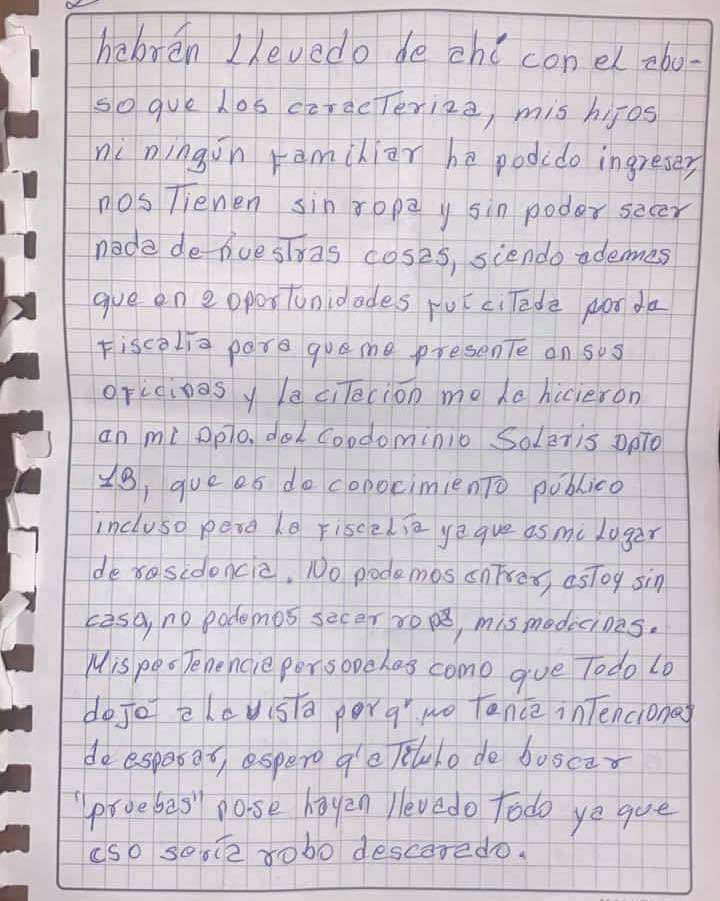 habrán llevado de ahí con el abu-
so que los caracteriza, mis hijos
ni ningún familiar ha podido ingresar,
nos Tienen sin ropa y sin poder sacar
nada de nuestras cosas, siendo ademas
que en 2 oportunidades fui citada por la
Fiscalía para que me presente en sus
oficinas y la citación me la hicieron
en mi Dpto. del Condominio Solaris Dpto
1B, que es de conocimiento público
incluso para la Fiscalía ya que es mi lugar
de residencia. No podemos entrar, estoy sin
casa, no podemos sacar ropa, mis medicinas.
Mis pertenencia personales como que Todo lo
dejo a la vista por q' no tenia intenciones
de esperar, espero q' a Titulo de buscar
"pruebas" no se hayan llevado Todo ya que
eso sería robo descarado.